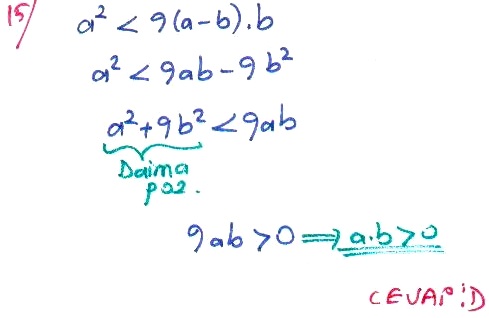 15/ a² < 9(a-b).b
a² < 9ab - 9b²
a² + 9b² < 9ab
Daima
poz.
9ab > 0 ⟹ a.b > 0
CEVAP:D